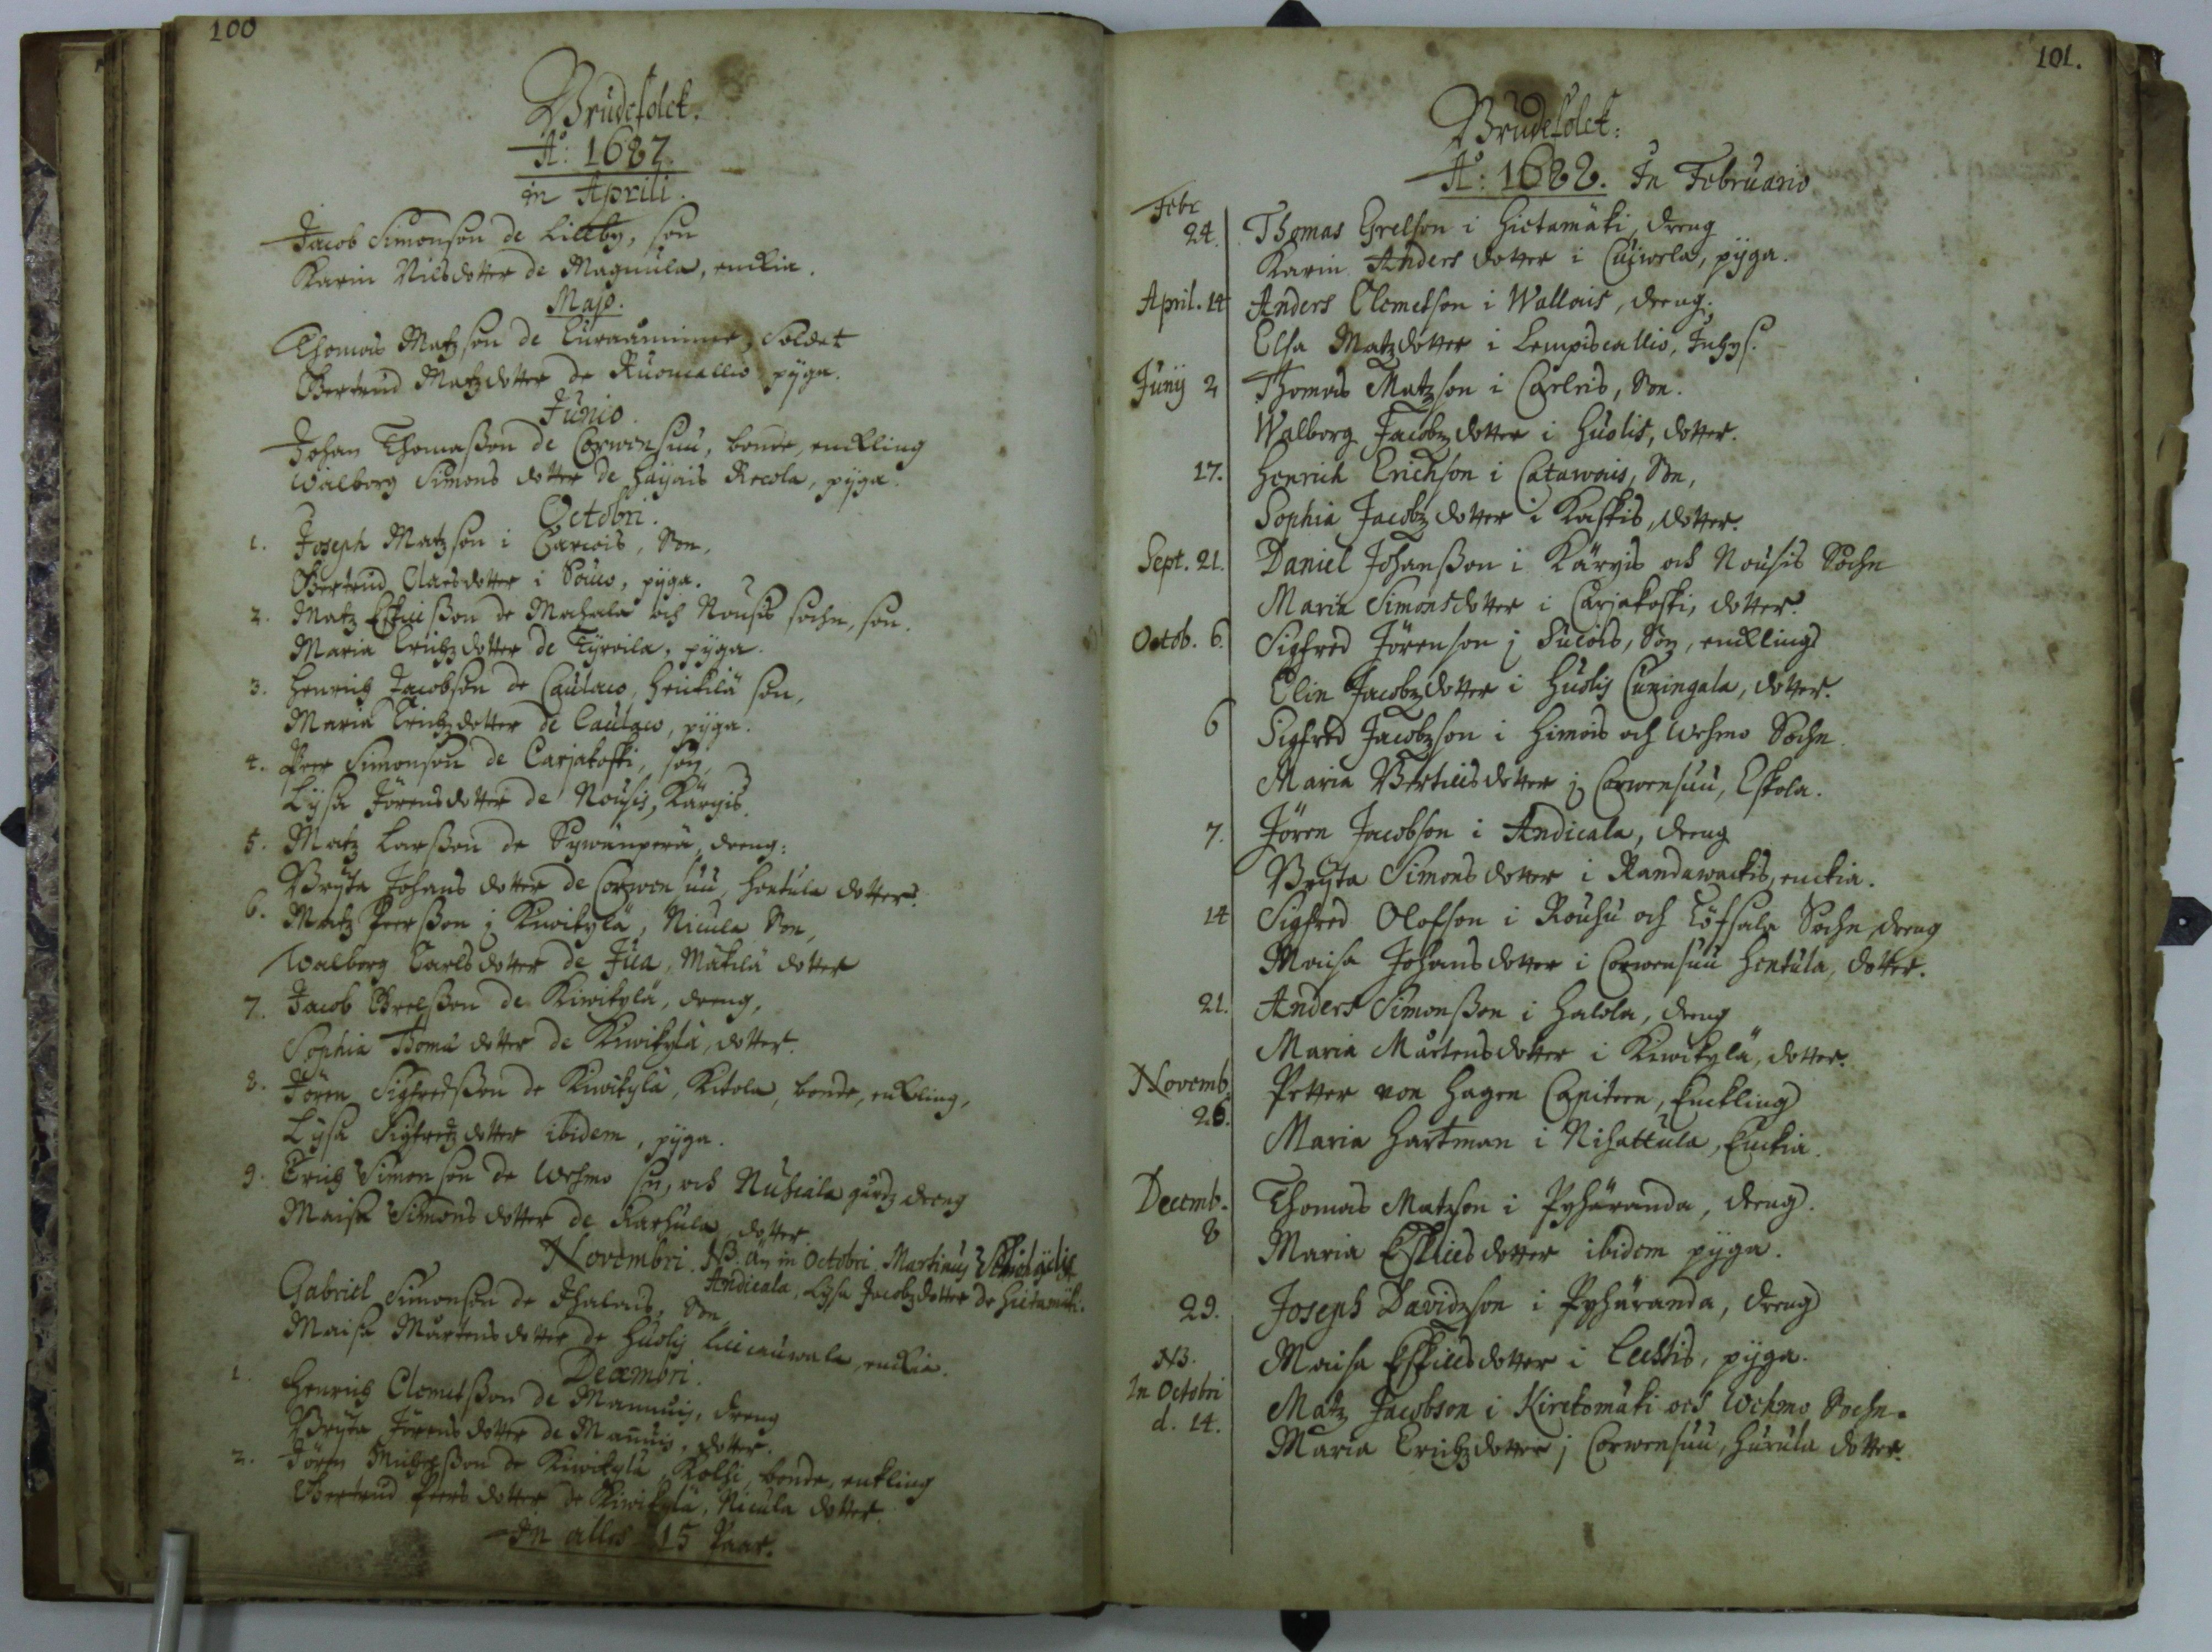 100
Brudefolck.
A:o 1687.
in Aprili.
Jacob Simonson de Lillby, son
Karin Nilsdotter de Magnula, enckia.
Majo.
Thomas Matzson de Euraåminne, Soldat
Bertrud Matzdotter de Ruoncallio pÿga.
Junio.
Johan Thomasson de Corwensuu, bonde, enckling
Walborg Simons dotter de Haijais Recola, pÿga.
Octobri.
1. Joseph Matzson i Carcois, Son,
Bertrud Claesdotter i Souco, pÿga.
2. Matz Eskilsson de Mahala och Nousis sochn, son.
Maria Erichzdotter de Tÿrvila, pÿga.
3. Henrich Jacobson de Caulaco, Heickilä son,
Maria Erichzdotter de Caulaco, pÿga.
4. Peer Simonson de Carjakoski, son,
Lÿsa Jörensdotter de Nousis, Kärvis.
5. Matz Larsson de Sÿwänperä, dreng:
Brÿta Johans dotter de Corwensuu, Hentula dotter.
6. Matz Peersson j Kiwikylä, Nicula Son,
Walborg Carlsdotter de Jua, Mäkilä dotter
7. Jacob Grelsson de Kiwikylä, dreng,
Sophia Thoma dotter de Kiwikylä, dotter.
8. Jören Sigfredsson de Kiwikylä, Kitola, bonde, enckling,
Lÿsa Sigfredz dotter ibidem, pÿga.
9. Erich Simonson de Wehmo sn, och Nuhiala gårdz dreng
Maisa Simons dotter de Karhula, dotter
Novembri. NB. än in Octobri. Martinus
Andicala, Lÿsa Jacobzdotter de Hietamäki.
Gabriel Simonson de Ihalais, Son
Maisa Mårtens dotter de Huolij, enckia.
Decembri.
1. Henrich Clemetsson de Mannuis, dreng
Brÿta Jörens dotter de Mannuis, dotter.
2. Jören Michelsson de Kiwikylä, Kolhi, bonde, enkling
Bertrud Peers dotter de Kiwikylä, Nicula dotter.
In alles 15 Paar.
101.
Brudefolck:
A:o 1688. In Februario
Febr
24. Thomas Grelson i Hietamäki, dreng
Karin Anders dotter i Cuiworla, pÿga.
April. 14 Anders Clemetson i Wallais, dreng.
Elsa Matzdotter i Lempiscallio, Inhÿs.
Junij 2 Thomas Matzson i Carleis, Son.
Walborg Jacobz dotter i Huolis, dotter.
17. Henrich Erichson i Catawais, Son,
Sophia Jacobz dotter i Kaskis, dotter.
Sept. 21. Daniel Johansson i Kärvis och Nousis Sochn
Maria Simonsdotter i Carjakoski, dotter.
Octob. 6. Sigfred Jörenson j Sucois, Son, enckling
Elin Jacobzdotter i Huolis Cuningala, dotter.
6 Sigfred Jacobzson i Himois och Wehmo Sochn.
Maria Bertilsdotter j Corwensuu, Eskola.
7. Jören Jacobson i Andicala, dreng
Brÿta Simons dotter i Randawackis, enckia.
14 Sigfred Olofson i Rouhu och Töfsala Sochn, dreng
Maisa Johansdotter i Corwensuu Hentula, dotter.
21. Anders Simonsson i Halola, dreng
Maria Mårtensdotter i Kiwikylä, dotter.
Novemb.
26. Petter von Hagen Capiteen, Enckling
Maria Hartman i Nihattula, Enckia.
Decemb.
8 Thomas Matzson i Pyhäranda, dreng.
Maria Eskilsdotter ibidem pÿga.
29. Joseph Davidzson i Pyhäranda, dreng
Maisa Eskilsdotter i Leistis, pÿga.
NB.
In Octobri
d. 14. Matz Jacobson i Kirckomäki och Wehmo Sochn.
Maria Erichzdotter j Corwensuu, Hurula dotter.